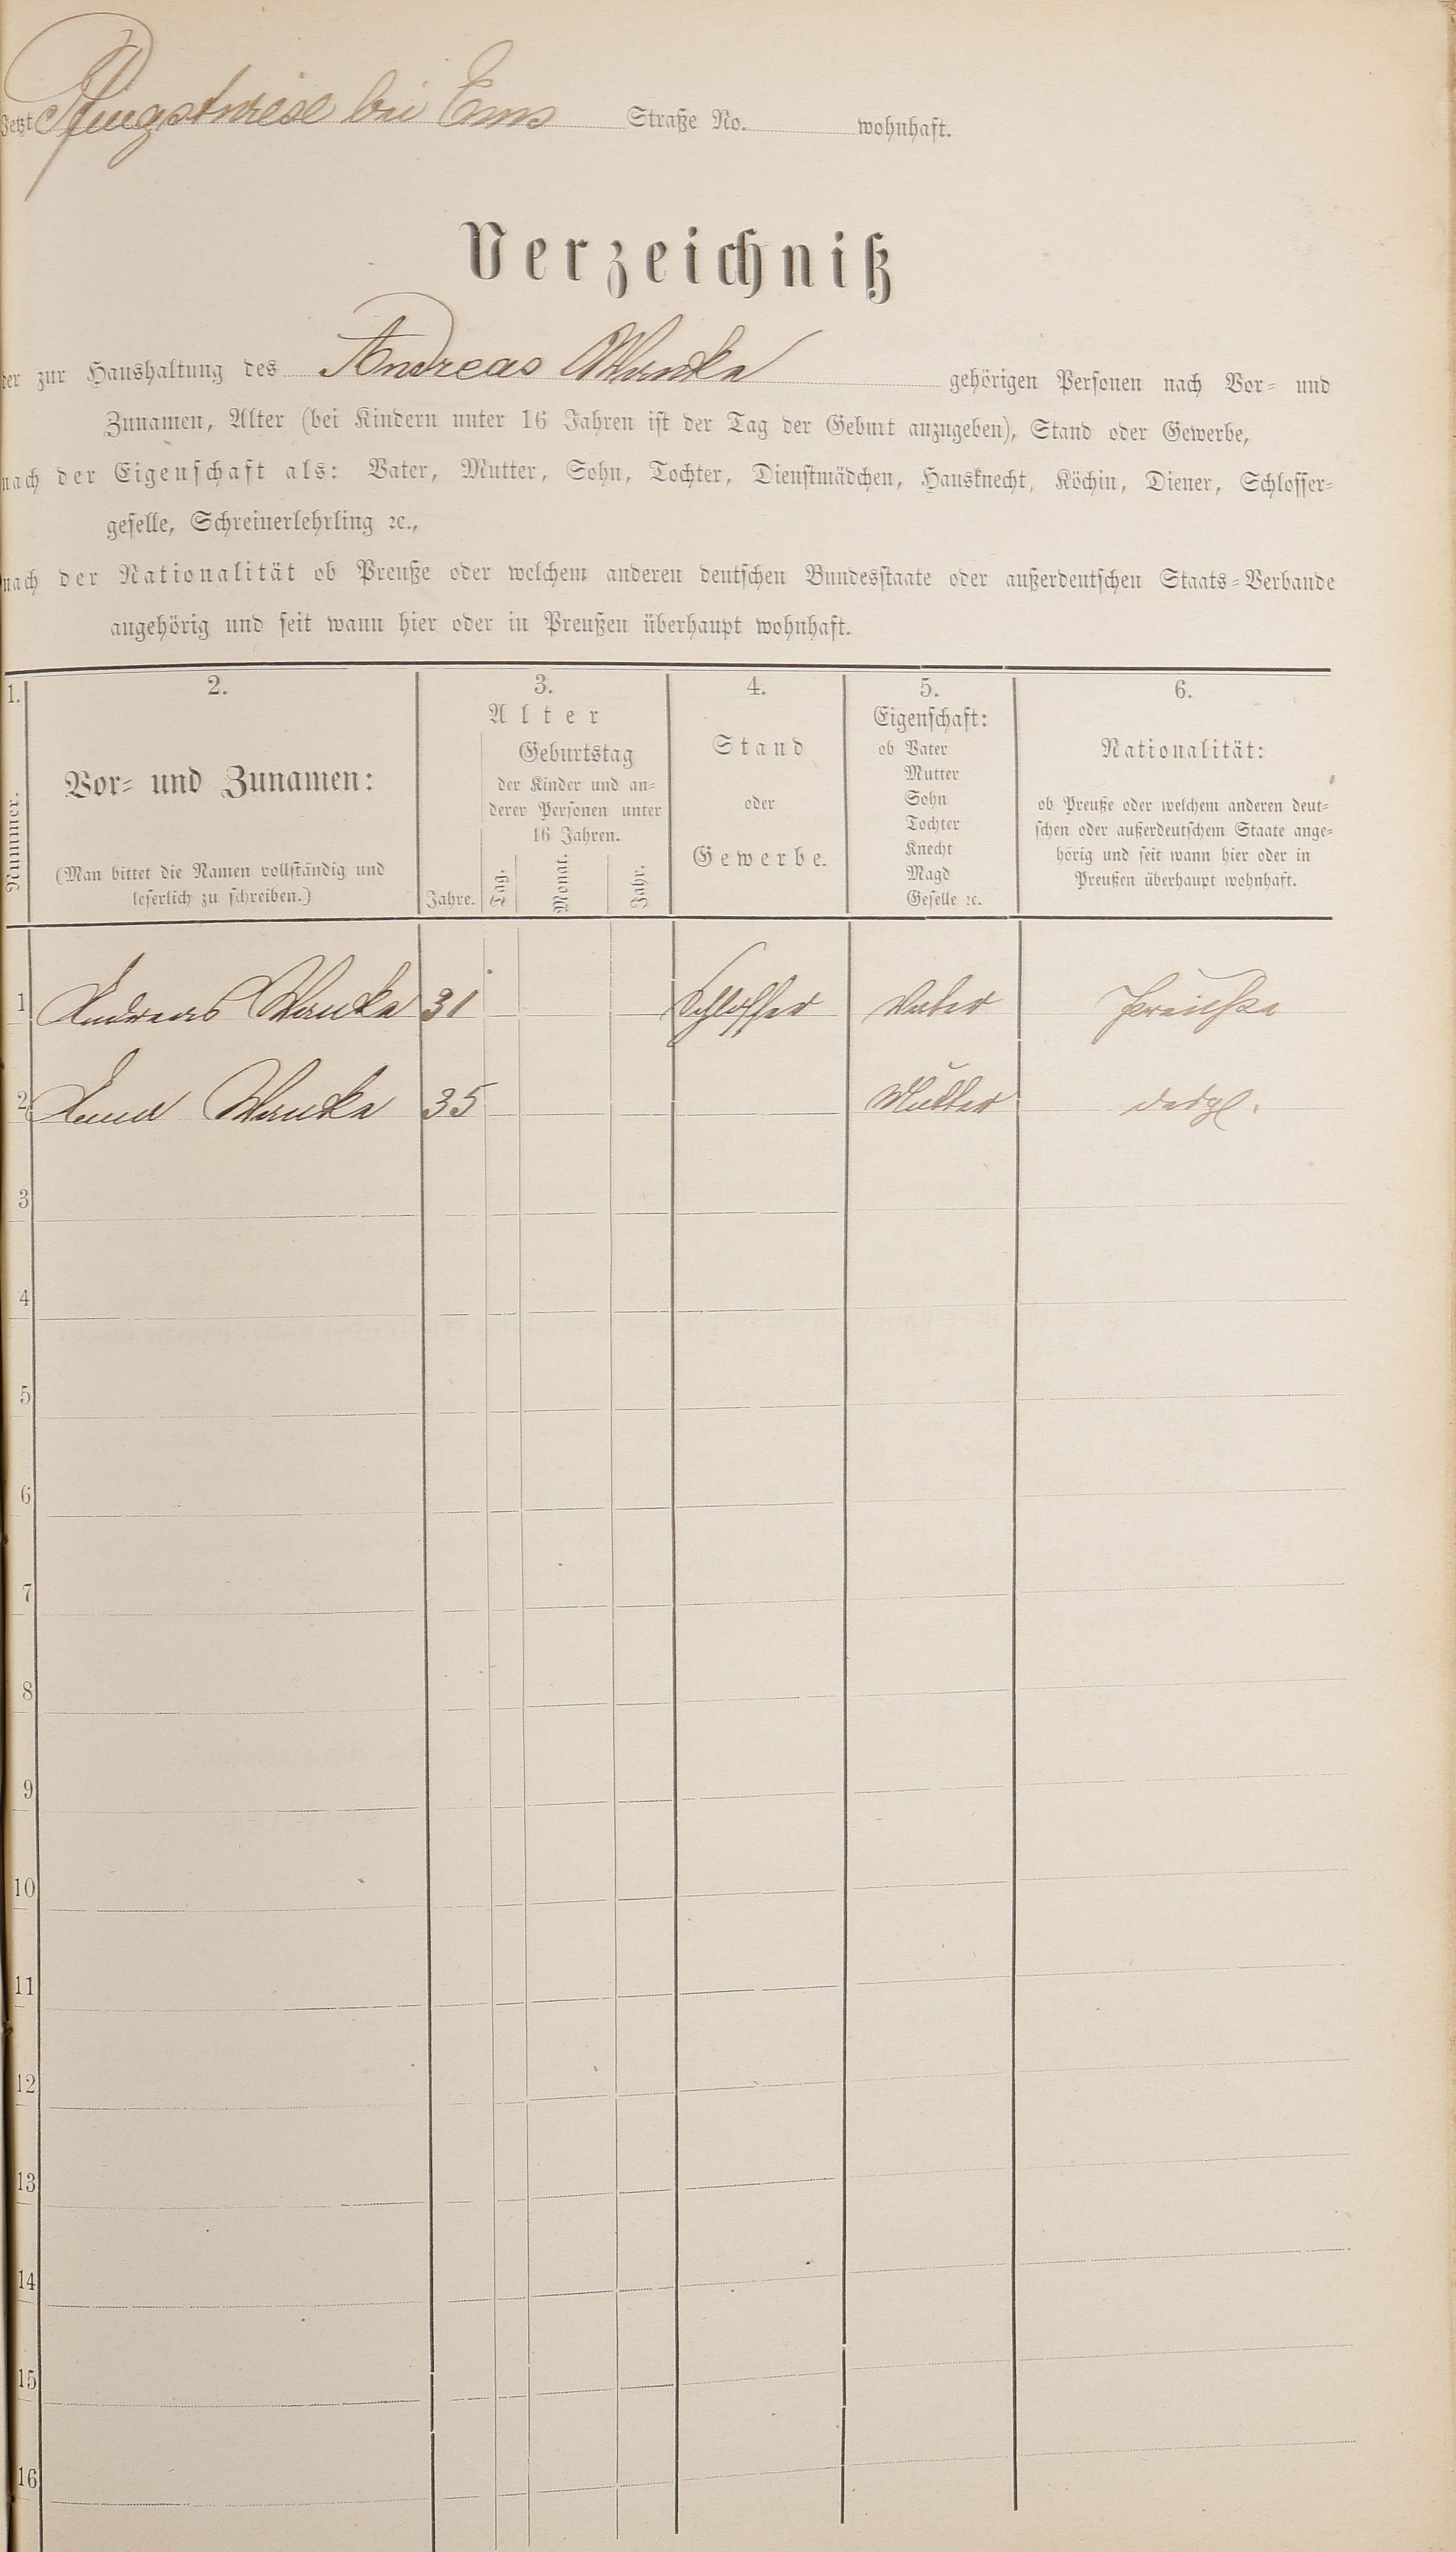 Jetzt Pfingstwiese bei Ems Straße No. wohnhaft.
Verzeichniß
der zur Haushaltung des Andreas Wanka gehörigen Personen nach Vor- und
Zunamen, Alter (bei Kindern unter 16 Jahren ist der Tag der Geburt anzugeben), Stand oder Gewerbe,
nach der Eigenschaft als: Vater, Mutter, Sohn, Tochter, Dienstmädchen, Hausknecht, Köchin, Diener, Schlosser-
geselle, Schreinerlehrling ꝛc.,
nach der Nationalität ob Preuße oder welchem anderen deutschen Bundesstaate oder außerdeutschen Staats-Verbande
angehörig und seit wann hier oder in Preußen überhaupt wohnhaft.
1. 2. 3. 4. 5. 6.
Nummer.
Vor- und Zunamen:
(Man bittet die Namen vollständig und
leserlich zu schreiben.)
Alter
Jahre.
Geburtstag
der Kinder und an-
derer Personen unter
16 Jahren.
Tag. Monat. Jahr.
Stand
oder
Gewerbe.
Eigenschaft:
ob Vater
Mutter
Sohn
Tochter
Knecht
Magd
Geselle ꝛc.
Nationalität:
ob Preuße oder welchem anderen deut-
schen oder außerdeutschem Staate ange-
hörig und seit wann hier oder in
Preußen überhaupt wohnhaft.
1 Andreas Wanka 31 Schlosser Vater Preuße
2 Anna Wanka 35 Mutter desgl.
3
4
5
6
7
8
9
10
11
12
13
14
15
16